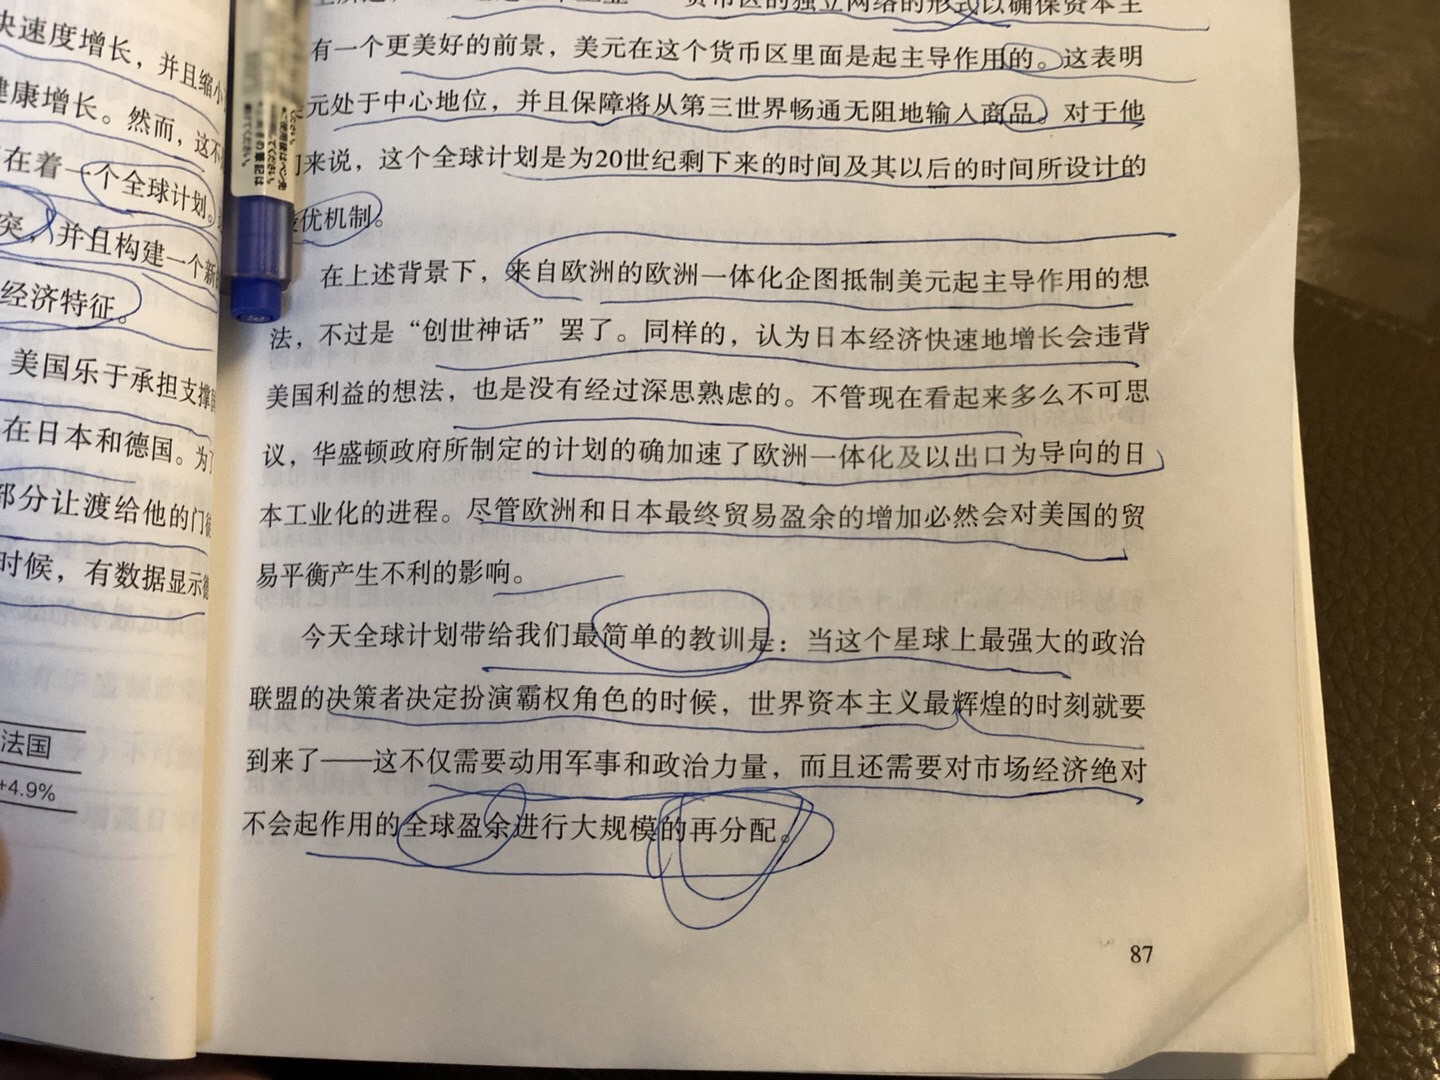 快速度增长，并且缩小
健康增长。然而，这不
在着一个全球计划。
突，并且构建一个新
经济特征。
美国乐于承担支撑
在日本和德国。为了
部分让渡给他的门徒
时候，有数据显示德
法国
+4.9%
货币区的独立网络的形式以确保资本主
有一个更美好的前景，美元在这个货币区里面是起主导作用的。这表明
元处于中心地位，并且保障将从第三世界畅通无阻地输入商品。对于他
们来说，这个全球计划是为20世纪剩下来的时间及其以后的时间所设计的
优机制。
在上述背景下，来自欧洲的欧洲一体化企图抵制美元起主导作用的想
法，不过是“创世神话”罢了。同样的，认为日本经济快速地增长会违背
美国利益的想法，也是没有经过深思熟虑的。不管现在看起来多么不可思
议，华盛顿政府所制定的计划的确加速了欧洲一体化及以出口为导向的日
本工业化的进程。尽管欧洲和日本最终贸易盈余的增加必然会对美国的贸
易平衡产生不利的影响。
今天全球计划带给我们最简单的教训是：当这个星球上最强大的政治
联盟的决策者决定扮演霸权角色的时候，世界资本主义最辉煌的时刻就要
到来了——这不仅需要动用军事和政治力量，而且还需要对市场经济绝对
不会起作用的全球盈余进行大规模的再分配。
87